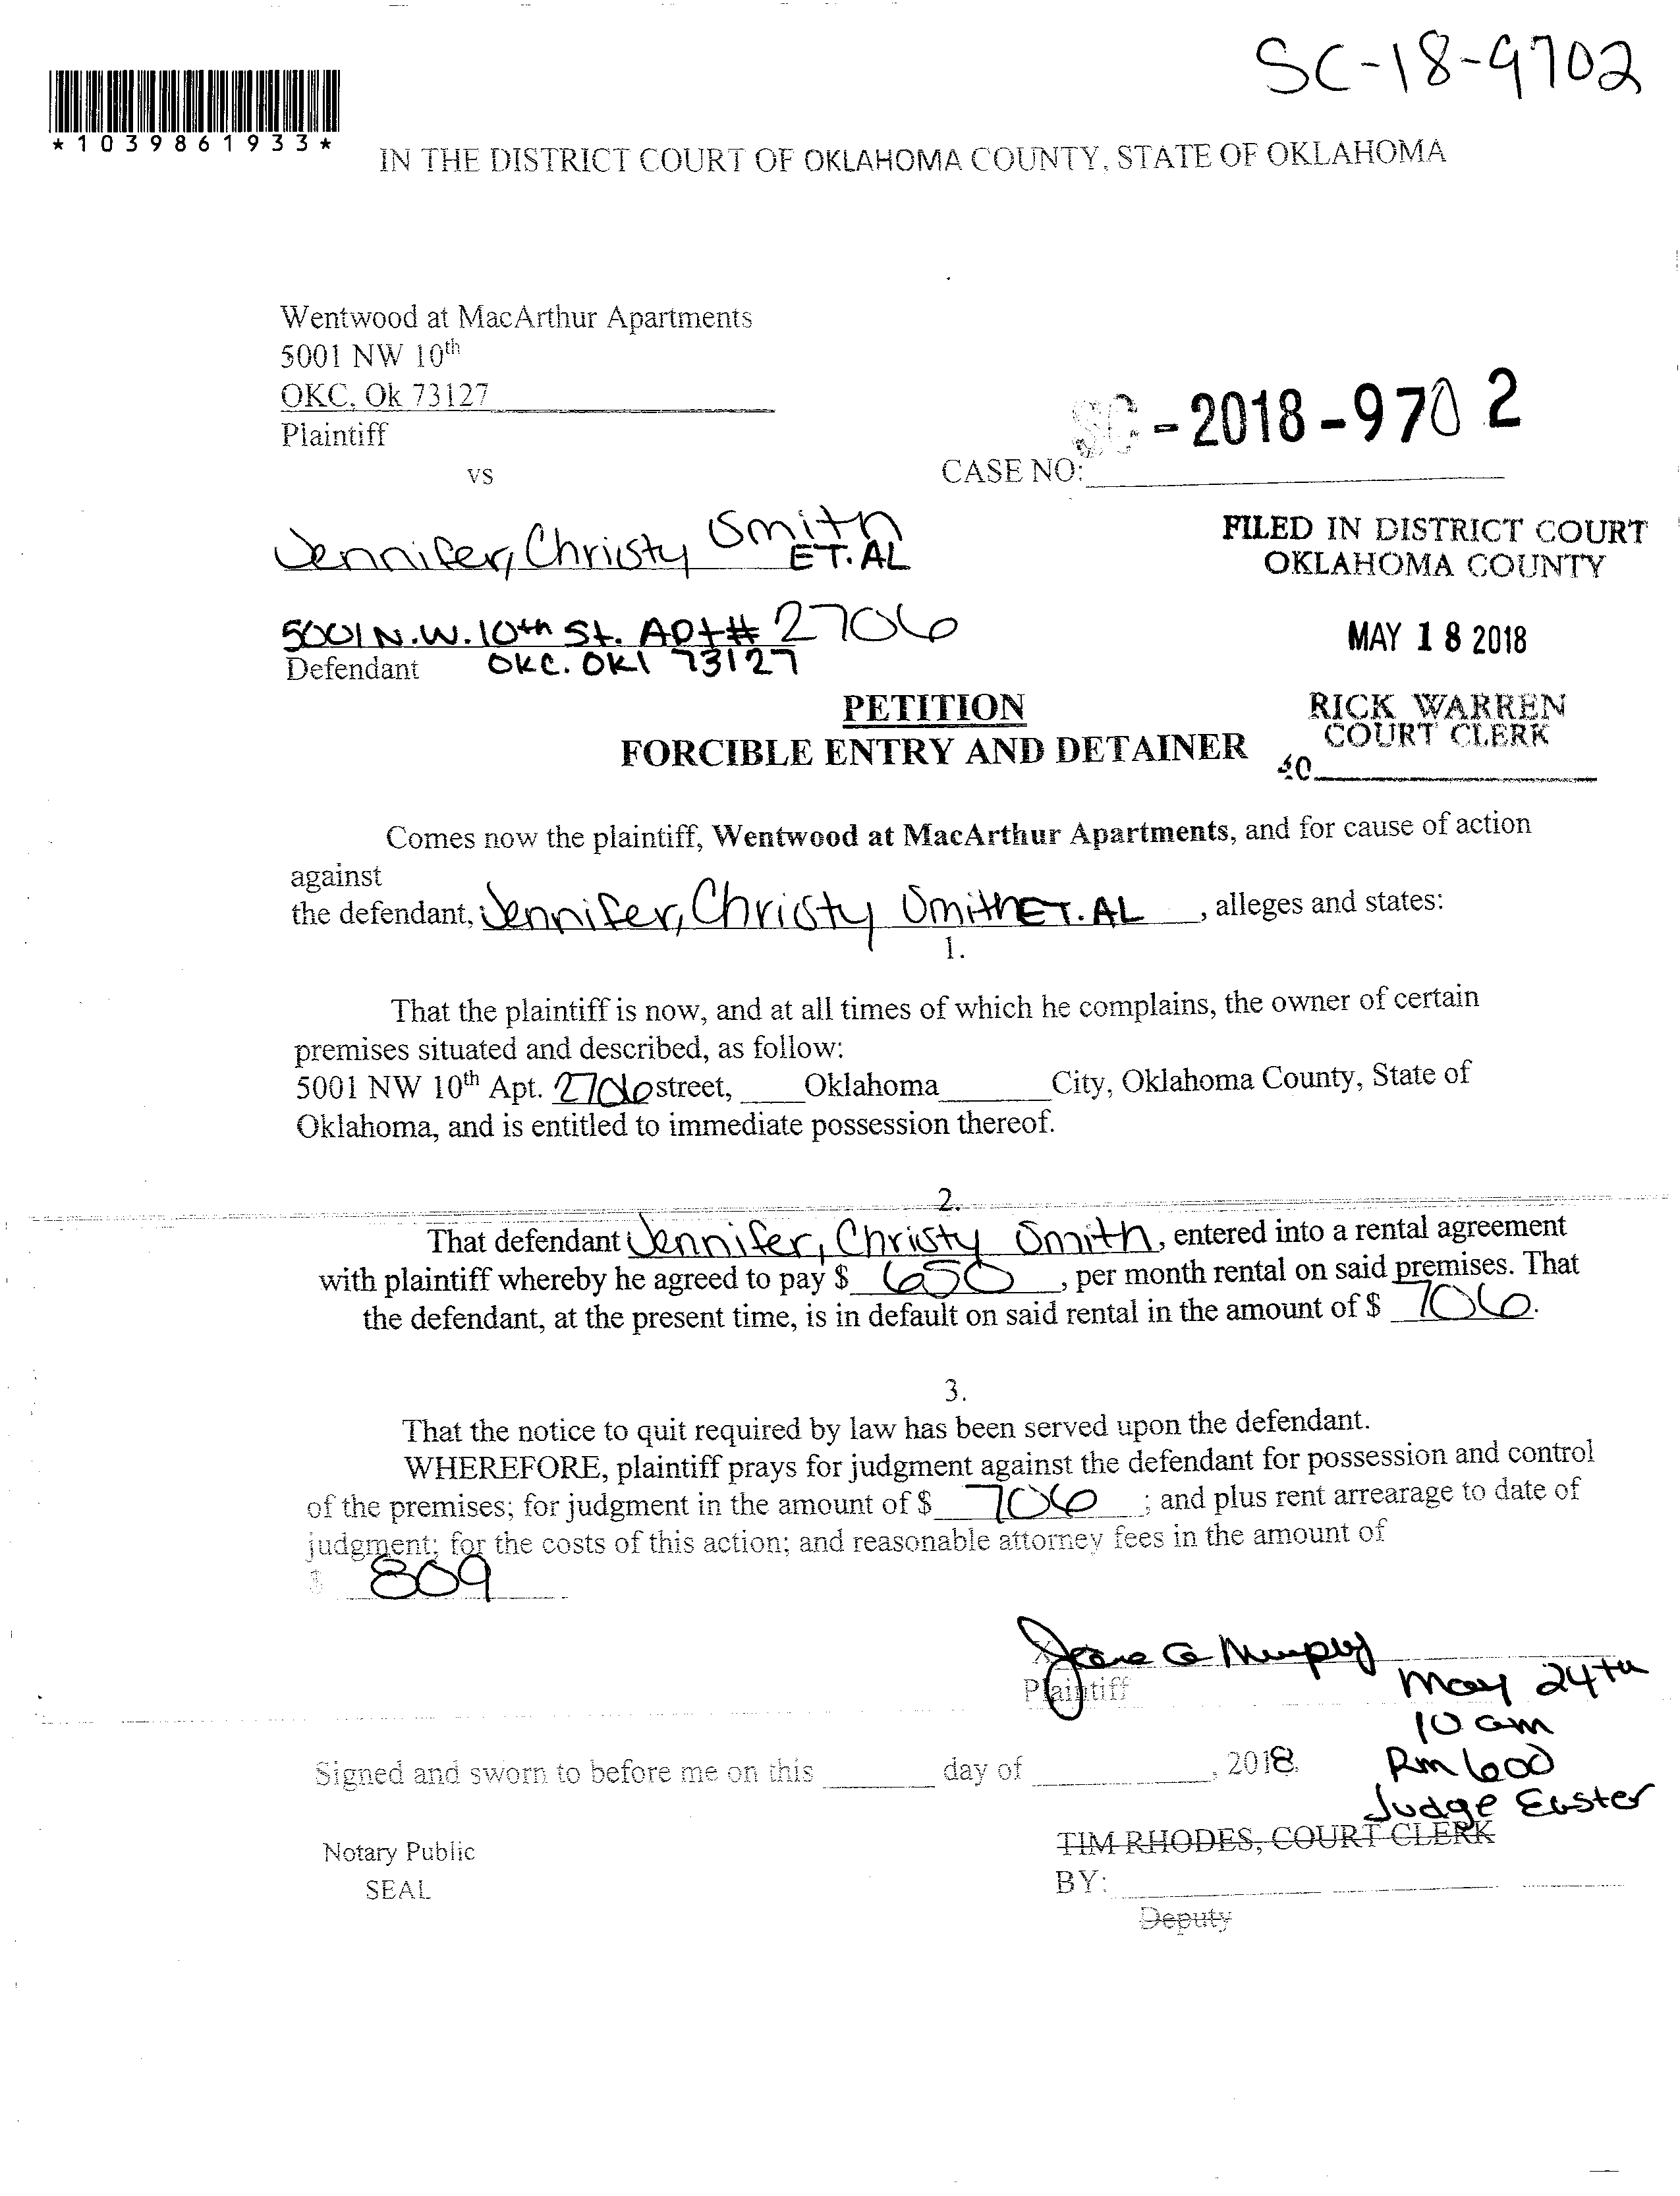 SC-18-9702
*1039861933*
IN THE DISTRICT COURT OF OKLAHOMA COUNTY, STATE OF OKLAHOMA
Wentwood at MacArthur Apartments
5001 NW 10th
OKC, Ok 73127
Plaintiff
vs
SC-2018-9702
CASE NO:
Jennifer, Christy Smith
ET. AL
FILED IN DISTRICT COURT
OKLAHOMA COUNTY
5001 N.W. 10th St. Apt# 2706
Defendant OKC. OKl 73127
MAY 18 2018
PETITION
FORCIBLE ENTRY AND DETAINER
RICK WARREN
COURT CLERK
40
Comes now the plaintiff, Wentwood at MacArthur Apartments, and for cause of action
against
the defendant, Jennifer, Christy Smith ET. AL , alleges and states:
1.
That the plaintiff is now, and at all times of which he complains, the owner of certain
premises situated and described, as follow:
5001 NW 10th Apt. 2706 street, Oklahoma City, Oklahoma County, State of
Oklahoma, and is entitled to immediate possession thereof.
2.
That defendant Jennifer, Christy Smith, entered into a rental agreement
with plaintiff whereby he agreed to pay $ 650 , per month rental on said premises. That
the defendant, at the present time, is in default on said rental in the amount of $ 706.
3.
That the notice to quit required by law has been served upon the defendant.
WHEREFORE, plaintiff prays for judgment against the defendant for possession and control
of the premises; for judgment in the amount of $ 706 ; and plus rent arrearage to date of
judgment; for the costs of this action; and reasonable attorney fees in the amount of
$ 809
X
Plaintiff
May 24th
10 am
Signed and sworn to before me on this day of , 2018.
Rm 600
Judge Easter
TIM RHODES, COURT CLERK
Notary Public
BY:
SEAL
Deputy